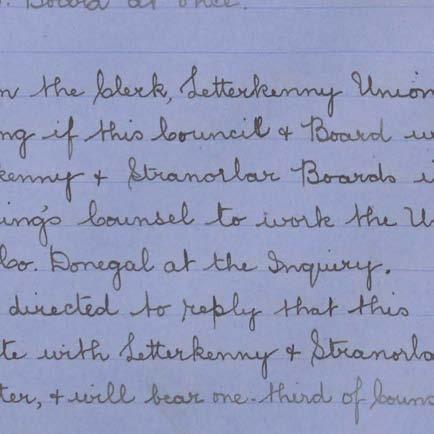 . Board at once.
n the Clerk, Letterkenny Union
ng if this Council & Board w
kenny & Stranorlar Boards i
ing's Counsel to work the U
Co. Donegal at the Inquiry.
directed to reply that this
te with Letterkenny & Stranorla
ter, & will bear one-third of Couns